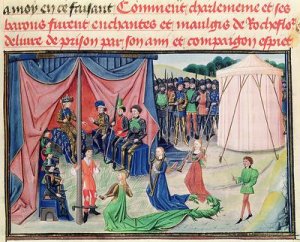 amoy en ce faisant Comment charlemeine et ses
barons furent enchantes et maulgis de Rocheflo
deliure de prison par son ami et compaignon espiet